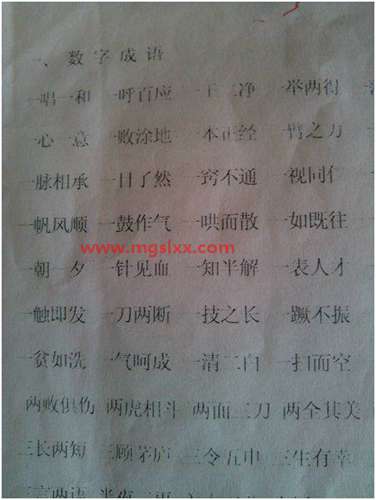 一、数字成语
一唱一和 一呼百应 一干二净 一举两得
一心一意 一败涂地 一本正经 一臂之力
一脉相承 一目了然 一窍不通 一视同仁
一帆风顺 一鼓作气 一哄而散 一如既往
www.mgslxx.com
一朝一夕 一针见血 一知半解 一表人才
一触即发 一刀两断 一技之长 一蹶不振
一贫如洗 一气呵成 一清二白 一扫而空
两败俱伤 两虎相斗 两面三刀 两全其美
三长两短 三顾茅庐 三令五申 三生有幸